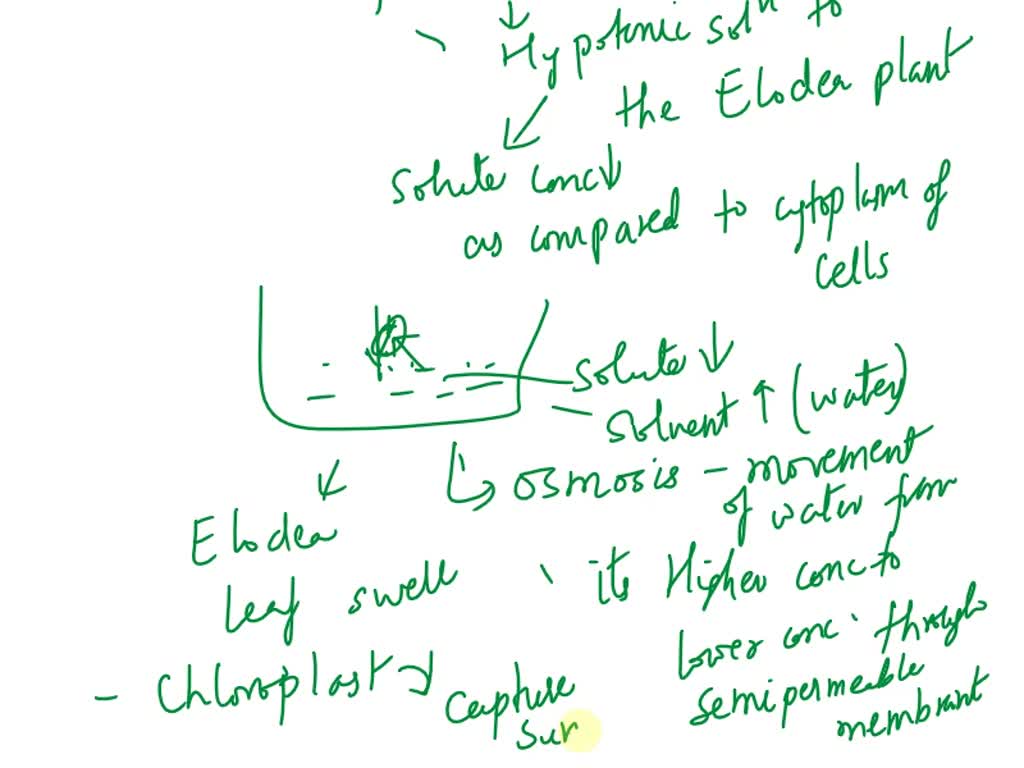 ↓
Hypotonic solⁿ to
the Elodea plant
Solute conc↓
as compared to cytoplasm of
cells
Solute ↓
Solvent ↑ (water)
osmosis - movement
of water from
its Higher conc to
lower conc. through
semipermeable
membrant
Elodea
leaf swell
- Chloroplast → Capture
Sur